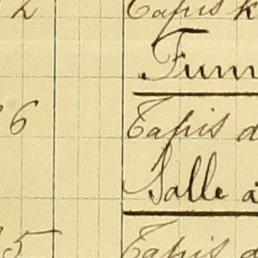 2 Tapis k
Fum
6 Tapis d
Salle à
5 Tapis d